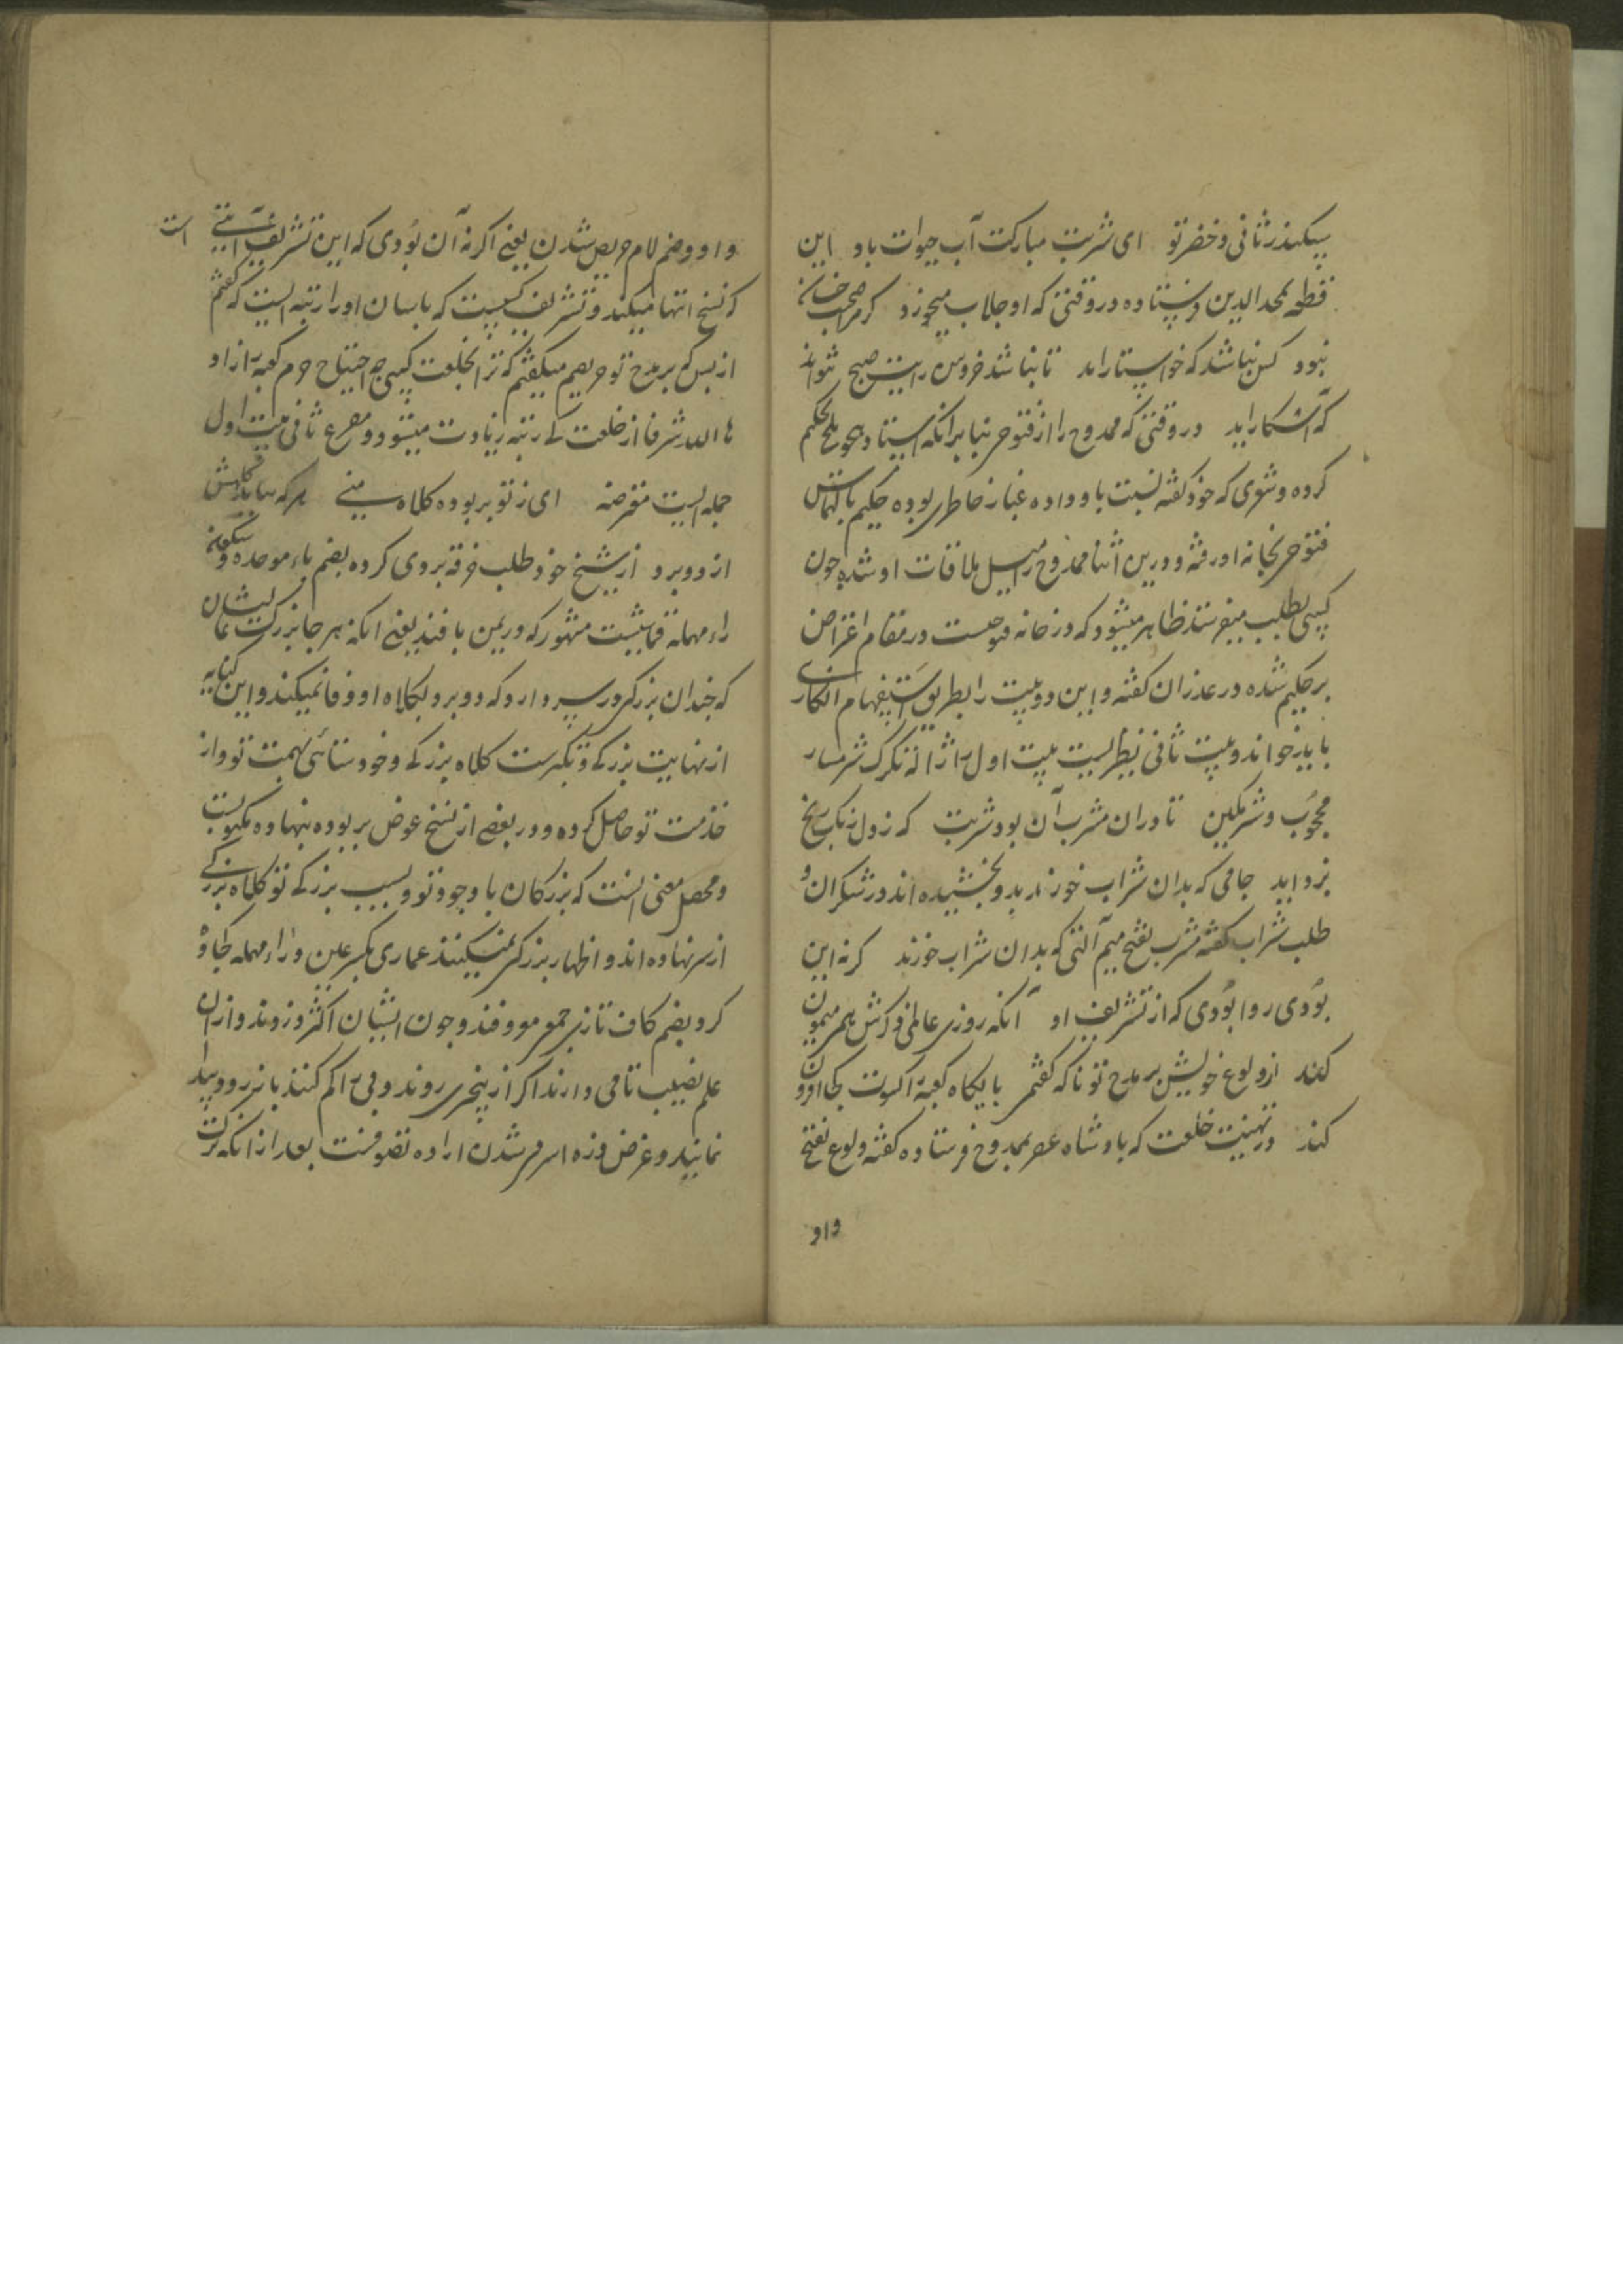 سکندر ثانی و خضر تو ای شربت مبارکت آب حیوات باد این
قطعه بمجدالدین فرستاده در وقتی که او جلاب میخورد کر صاحب خانه
نبود کس نباشد که خواستار اید تا نباشد خروس رایت صبح نتواند
که آشکار اید در وقتی که ممدوح را از فتوحی بنابر انکه استاد هجو بلخ حکیم
کرده و شعری که خود کفته نسبت باو داده غبار خاطر بوده حکیم بالتماس
فتوحی بخانه او رفته و درین اثنا ممدوح را میل ملاقات او شده چون
کسی بطلب میفرستد ظاهر میشود که در خانه فتوحیست در مقام اعتراض
بر حکیم شده در عذر ان کفته و این دو بیت را بطریق استفهام انکاری
باید خواند و بیت ثانی نظیر بیت اول
محجوب و شرمکین تا دران مشرب آن بود شربت که ز دل زنک رنج
بزداید جامی که بدان شراب خورند بدو بخشیده اند در شکران و
طلب شراب کفته مشرب بفتح میم آلتی که بدان شراب خورند کر نه این
بودی روا بودی که از تشریف او آنکه روزی عالمی فرش همی میمون
کند از ولوع خویش بر مدح تو نا که کفتمی بایکاه کعبه را کسوت کجا افزون
کند در تهنیت خلعت که پادشاه عصر بممدوح فرستاده کفته ولوع بفتح
واو
واو و ضم لام حریص شدن یعنی اکر نه آن بودی که این تشریف آیتی است
که نسخ انها میکند و تشریف کسیست که پاسبان او را رتبه ایست که کفتم
از بس که بر مدح تو حریصم میکفتم که ترا بخلعت کسی چه احتیاج حرم کعبه را زاد
ها الله شرفا از خلعت کی رتبه زیادت میشود و مصرع ثانی بیت اول
جمله ایست معترضه ای ز تو بر بوده کلاه منی هر که بباید کلاهش
از دو برد از شیخ خود طلب خرقه بردی کرده بضم باء موحده و سکون
راء مهمله قماشیست مشهور که در یمن بافند یعنی انکه هر جا بزرکیست نشان
که چندان بزرکی در سر دارد که دو برد بکلاه او وفا نمیکند و این کنایه
از نهایت بزرکی و تکبرست کلاه بزرکی و خودستائی بهمت تو و از
خدمت تو حاصل کرده و در بعضی از نسخ عوض بر بوده بنهاده مکتوبست
و محصل معنی انست که بزرکان با وجود تو و بسبب بزرکی تو کلاه بزرکی
از سر نهاده اند و اظهار بزرکی نمیکنند عماری بکسر عین و راء مهمله کجاوه
کرد بضم کاف تازی جمعی معروفند و چون ایشان اکثر دزدند و از ان
علم نصیب تامی دارند اکر از پنجری روند و پی را کم کنند باز رود پیدا
نمایند و غرض از اسر شدن اراده تصوفست بعد از انکه ترک